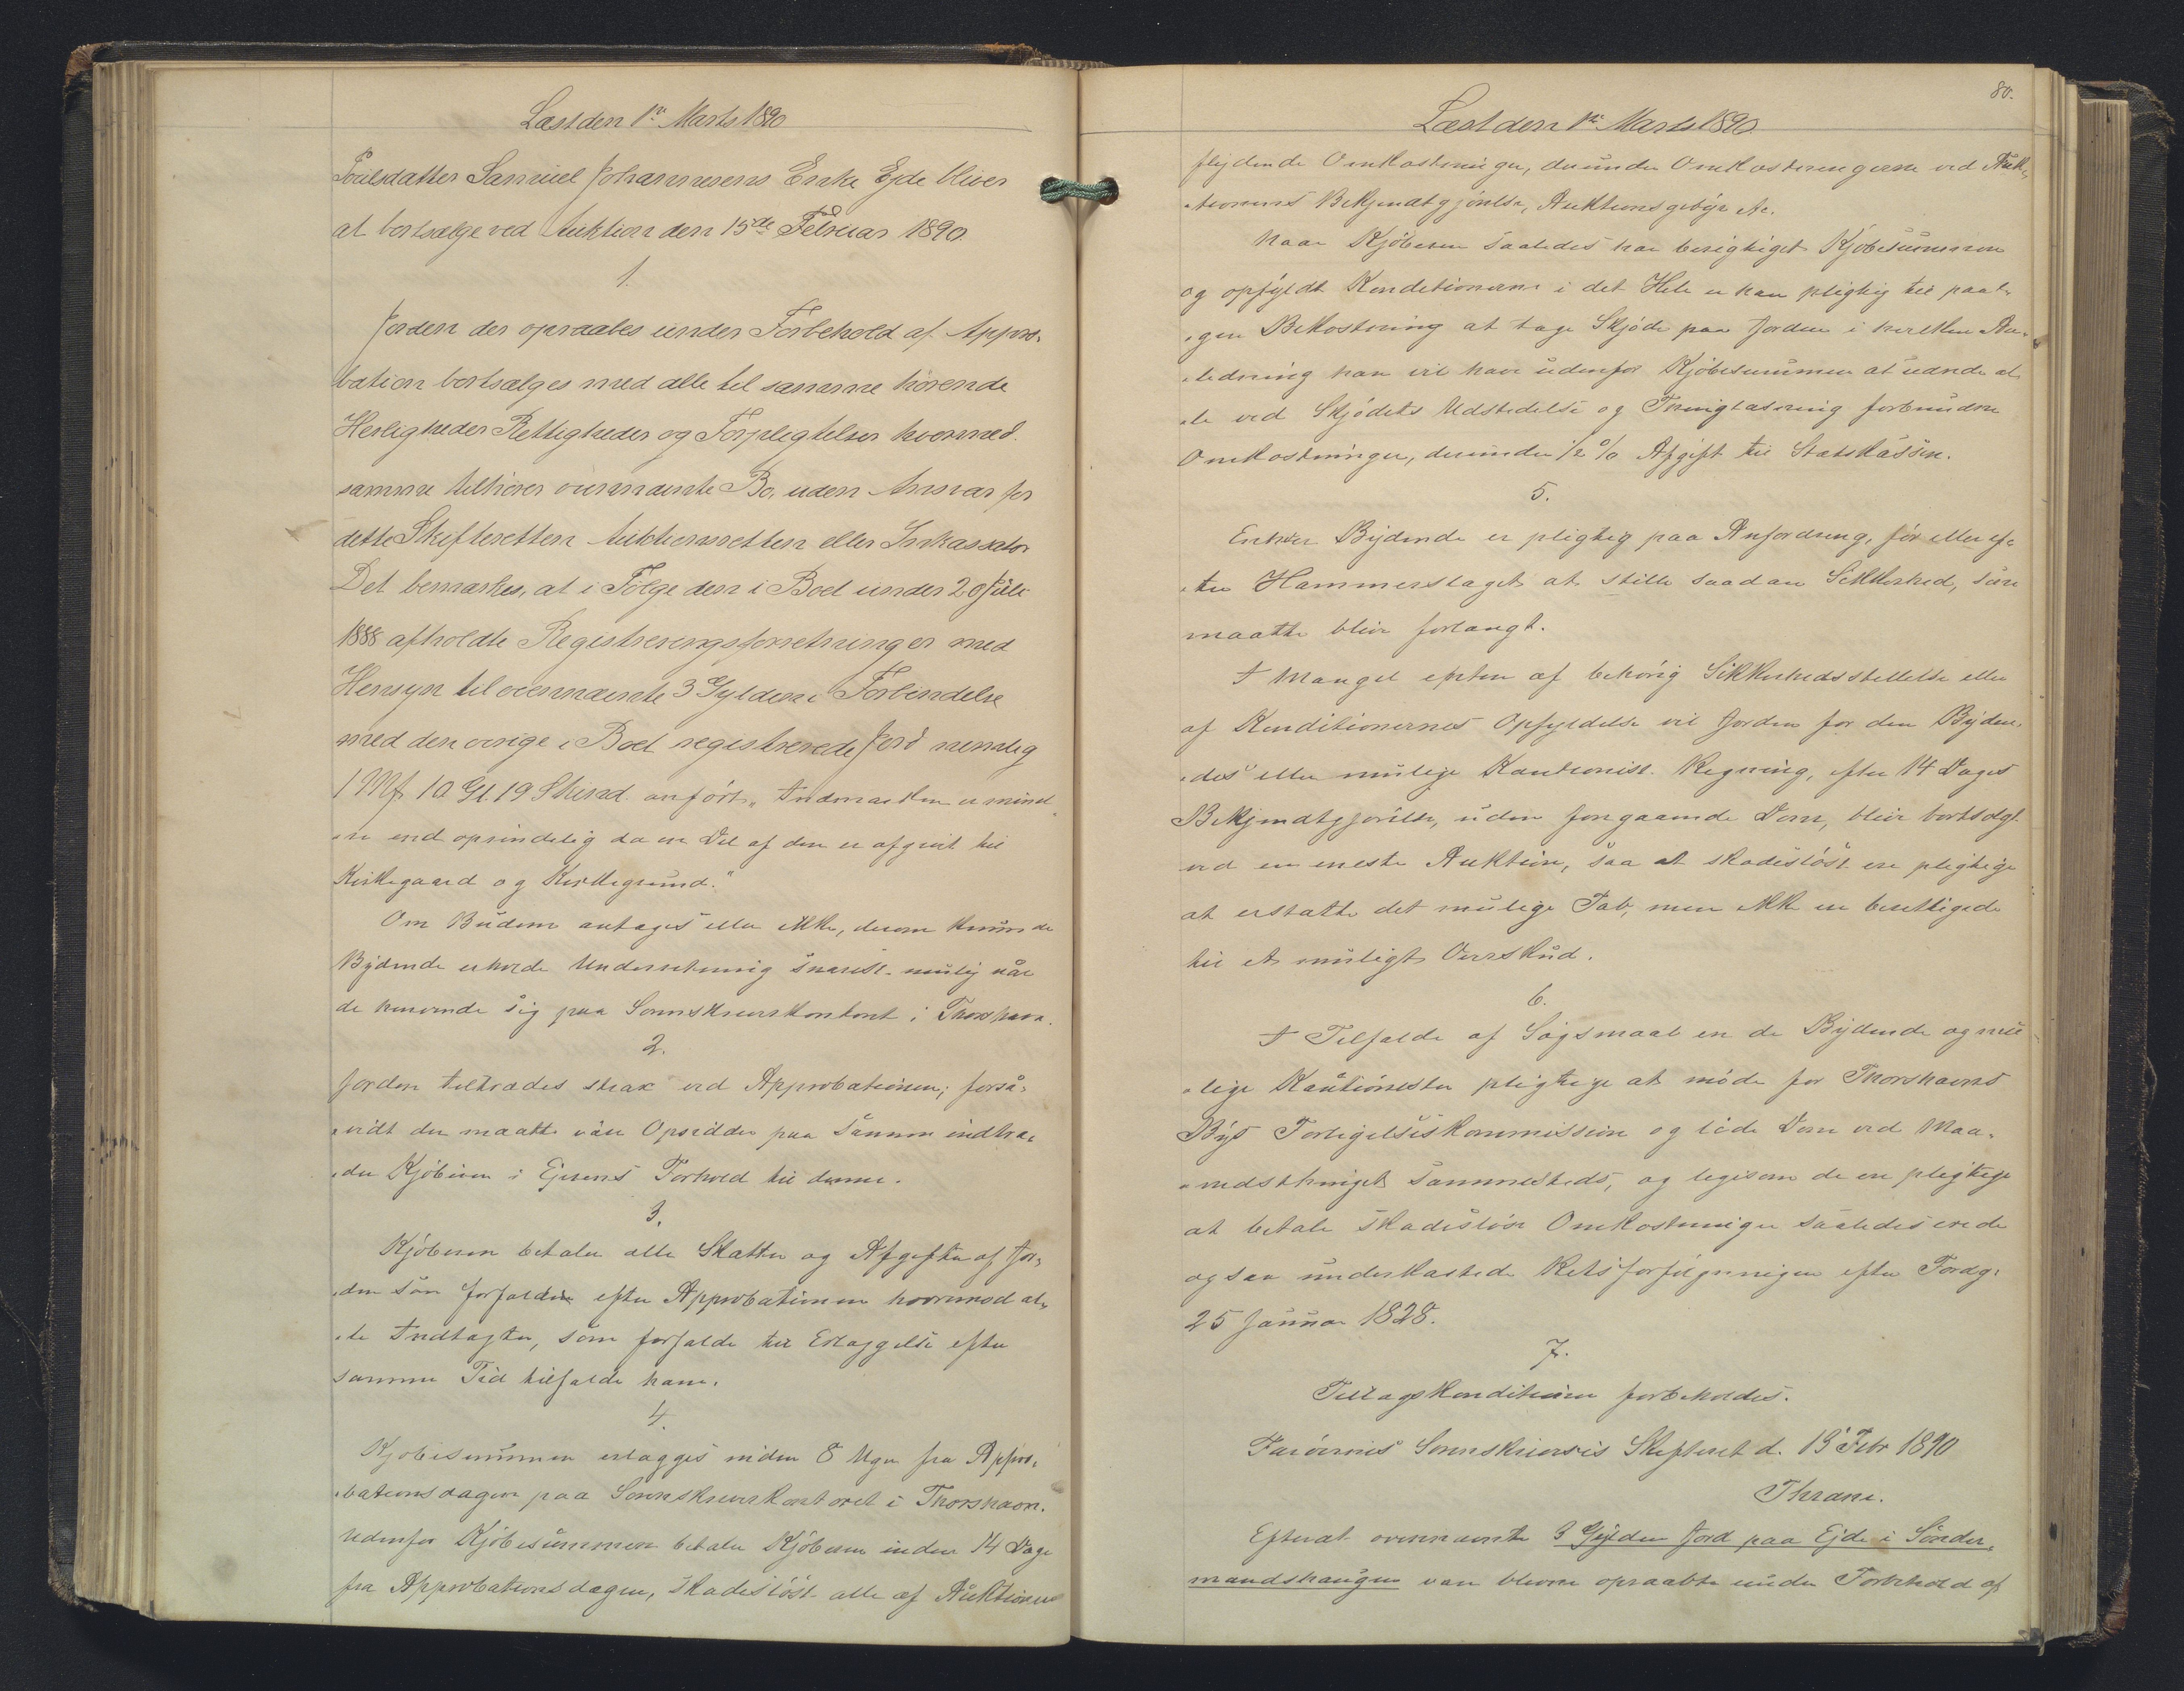 Læst den 1ste Marts 1890
Poulsdatter Samuel Johannesens Enke Ejde bliver
at bortsælge ved Auktion den 15de Februar 1890.
1.
Jorden der opraabes under Forbehold af Appro-
bation bortsælges med alle til samme hørende
Herligheder Rettigheder og Forpligtelser hvormed
samme tilhører ovennævnte Bo, uden Ansvar for
dette Skifteretten Auktionsretten eller Inkassator
Det bemærkes, at i Følge den i Boet under 20 Juli
1888 afholdte Registreringsforretninger med
Hensyn til ovennævnte 3 Gylden i Forbindelse
med den øvrige i Boet registrerede Jord nemlig
1 Mk 10 Gl. 19 Skind. anført "Indmarken er mind-
-re end oprindelig da en Del af den er afgivet til
Kirkegaard og Kirkegrund."
Om Budene antages eller ikke, derom kunne de
Bydende erholde Underretning snarest mulig når
de henvende sig paa Sorenskriverkontoret i Thorshavn.
2.
Jorden tiltrædes strax ved Approbationen; forså-
-vidt der maatte være Opsidder paa samme indtræ-
-der Kjøberen i Ejerens Forhold til denne.
3.
Kjøberen betaler alle Skatter og Afgifter af Jor-
-den som forfalden efter Approbationen hvorimod al-
-le Indtægter, som forfalde til Erlæggelse efter
samme Tid tilfalde ham.
4.
Kjøbesummen erlægges inden 8 Uger fra Appro-
-bationsdagen paa Sorenskriverkontoret i Thorshavn.
Udenfor Kjøbesummen betaler Kjøberen inden 14 Dage
fra Approbationsdagen, skadesløst alle af Auktionen
80.
Læst den 1ste Marts 1890.
flydende Omkostninger, derunder Omkostningerne ved Auk-
-tionens Bekjendtgjørelse, Auktionsgebyr etc.
Naar Kjøberen saaledes har berigtiget Kjøbesummen
og opfyldt Konditionerne i det Hele er han pligtig til paa
-gen Bekostning at tage Skjøde paa Jorden i hvilken An-
-ledning han vil have udenfor Kjøbesummen at udrede al-
-le ved Skjødets Udstedelse og Thinglæsning forbundne
Omkostninger, derunder 1/2 % Afgift til Statskassen.
5.
Enhver Bydende er pligtig paa Anfordring, før eller ef-
-ter Hammerslaget at stille saadan Sikkerhed, som
maatte blive forlangt.
I Mangel enten af behørig Sikkerhedsstillelse eller
af Konditionernes Opfyldelse vil Jorden for den Byden-
-des eller mulige Kautionist. Regning, efter 14 Dages
Bekjendtgjørelse, uden foregaaende Dom, blive bortsolgt
ved en eneste Auktion, saa at skadesløst ere pligtige
at erstatte det mulige Tab, men ikke ere berettigede
til et muligt Overskud.
6.
I Tilfælde af Søgsmaal ere de Bydende og mu-
-lige Kautionister pligtige at møde for Thorshavns
Bys Forligelseskommission og lide Dom ved Maa-
-nedsthinget sammesteds, og ligesom de ere pligtige
at betale skadesløse Omkostninger saaledes ere de
ogsaa underkastede Retsforfølgningen efter Fordg.
25 Januar 1828.
7.
Tillægskonditioner forbeholdes.
Færøernes Sorenskriveries Skifteret d. 13 Febr 1890
Thrane.
Efterat ovennævnte 3 Gylden Jord paa Ejde i Sønder-
mandshaugen var bleven opraabte under Forbehold af